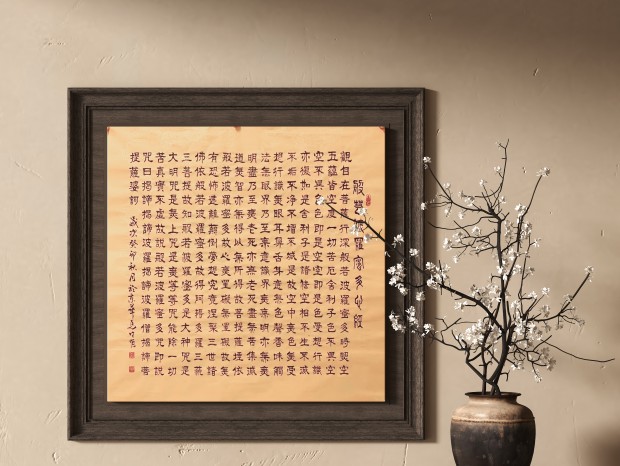 般若波羅蜜多心經
觀自在菩薩行深般若波羅蜜多時照見
五蘊皆空度一切苦厄舍利子色不異空
空不異色色即是空空即是色受想行識
亦復如是舍利子是諸法空相不生不滅
不垢不淨不增不減是故空中無色無受
想行識無眼耳鼻舌身意無色聲香味觸
法無眼界乃至無意識界無無明亦無無
明盡乃至無老死亦無老死盡無苦集滅
道無智亦無得以無所得故菩提薩埵依
般若波羅蜜多故心無罣礙無罣礙故無
有恐怖遠離顛倒夢想究竟涅槃三世諸
佛依般若波羅蜜多故得阿耨多羅三藐
三菩提故知般若波羅蜜多是大神咒是
大明咒是無上咒是無等等咒能除一切
苦真實不虛故說般若波羅蜜多咒即說
咒曰揭諦揭諦波羅揭諦波羅僧揭諦菩
提薩婆訶 歲次癸卯秋月於京華